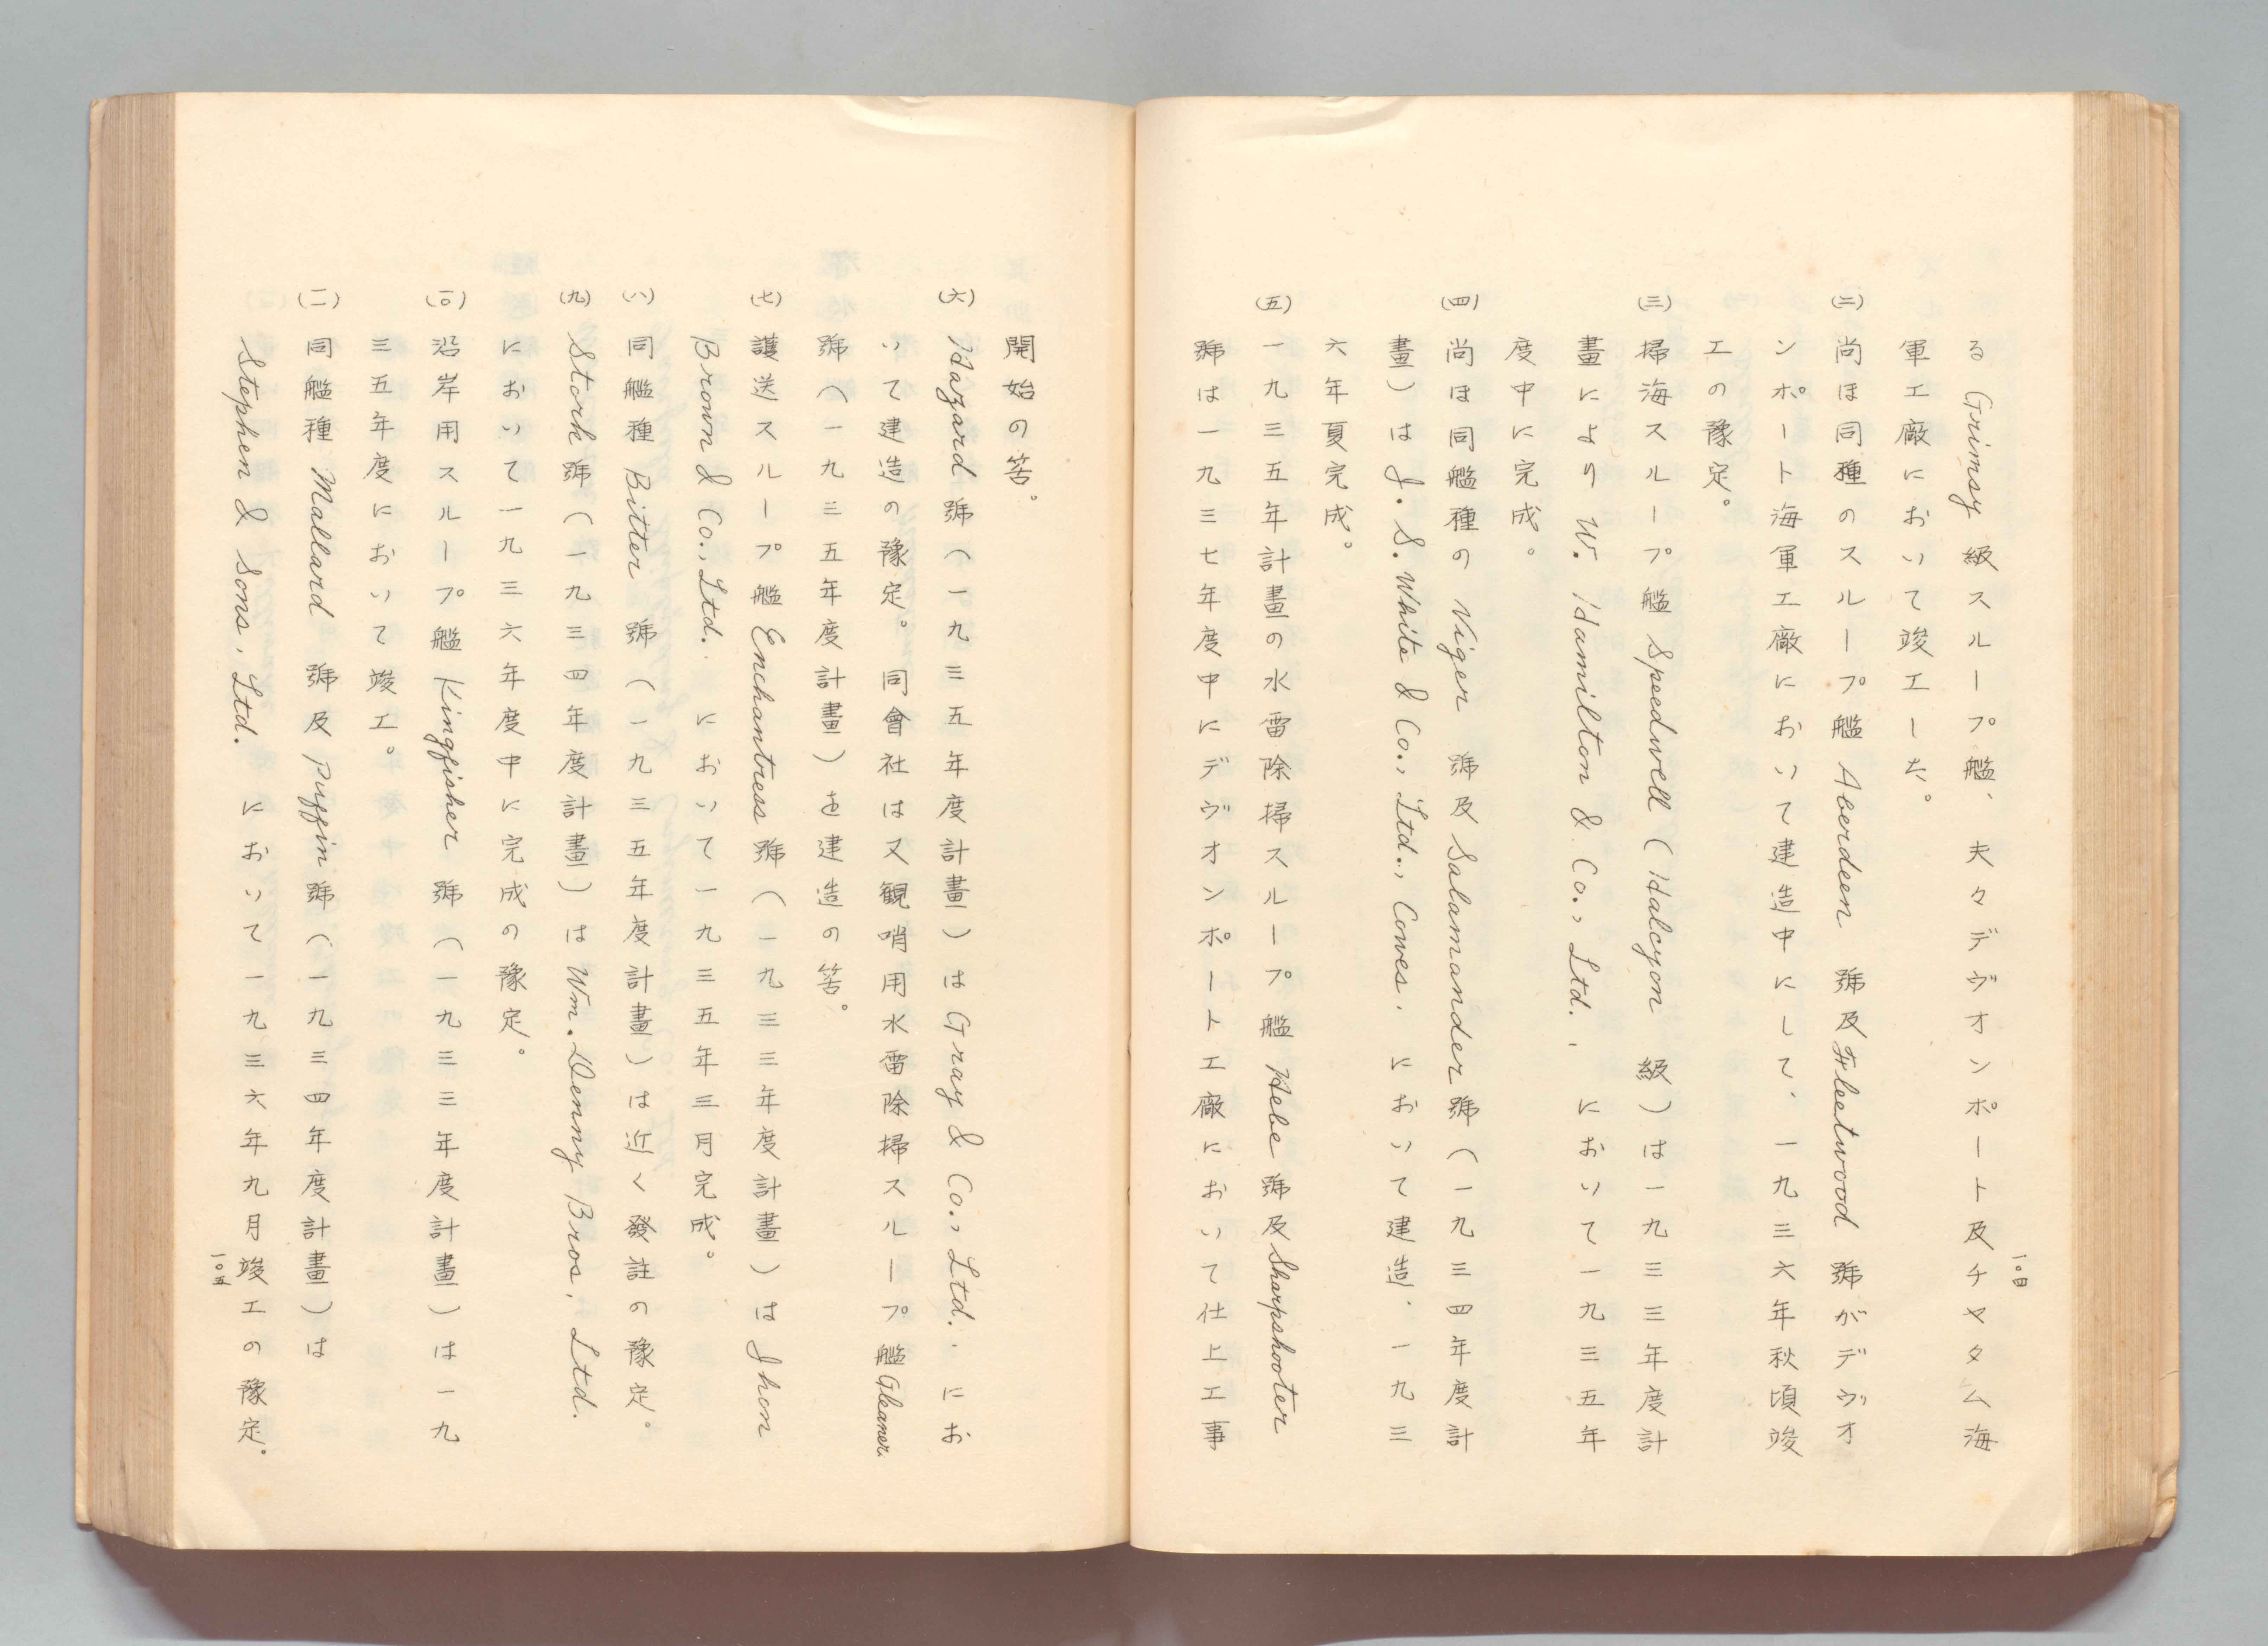 る Grimsy 級スループ艦、夫々デヴオンポート及チヤタム海
軍工廠において竣工した。
(二) 尚ほ同種のスループ艦 Aberdeen 號及 Fleetwood 號がデヴオ
ンポート海軍工廠において建造中にして、一九三六年秋頃竣
工の豫定。
(三) 掃海スループ艦 Speedwell (Halcyon 級)は一九三三年度計
畫により W. Hamilton & Co., Ltd. において一九三五年
度中に完成。
(四) 尚ほ同艦種の Niger 號及 Salamander 號(一九三四年度計
畫)は J. S. White & Co., Ltd., Cowes. において建造、一九三
六年夏完成。
(五) 一九三五年計畫の水雷除掃スループ艦 Hebe 號及 Sharpshooter
號は一九三七年度中にデヴオンポート工廠において仕上工事
一〇四
開始の筈。
(六) Hazard 號(一九三五年度計畫)は Gray & Co., Ltd. にお
いて建造の豫定。同會社は又観哨用水雷除掃スループ艦 Gleaner
號(一九三五年度計畫)を建造の筈。
(七) 護送スループ艦 Enchantress 號(一九三三年度計畫)は Jhon
Brown & Co., Ltd. において一九三五年三月完成。
(八) 同艦種 Bitter 號(一九三五年度計畫)は近く發註の豫定。
(九) Stork 號(一九三四年度計畫)は Wm. Denny Bros, Ltd.
において一九三六年度中に完成の豫定。
(一〇) 沿岸用スループ艦 Kingfisher 號(一九三三年度計畫)は一九
三五年度において竣工。
(一一) 同艦種 Mallard 號及 Puffin 號(一九三四年度計畫)は
Stephen & Sons, Ltd. において一九三六年九月竣工の豫定。
一〇五